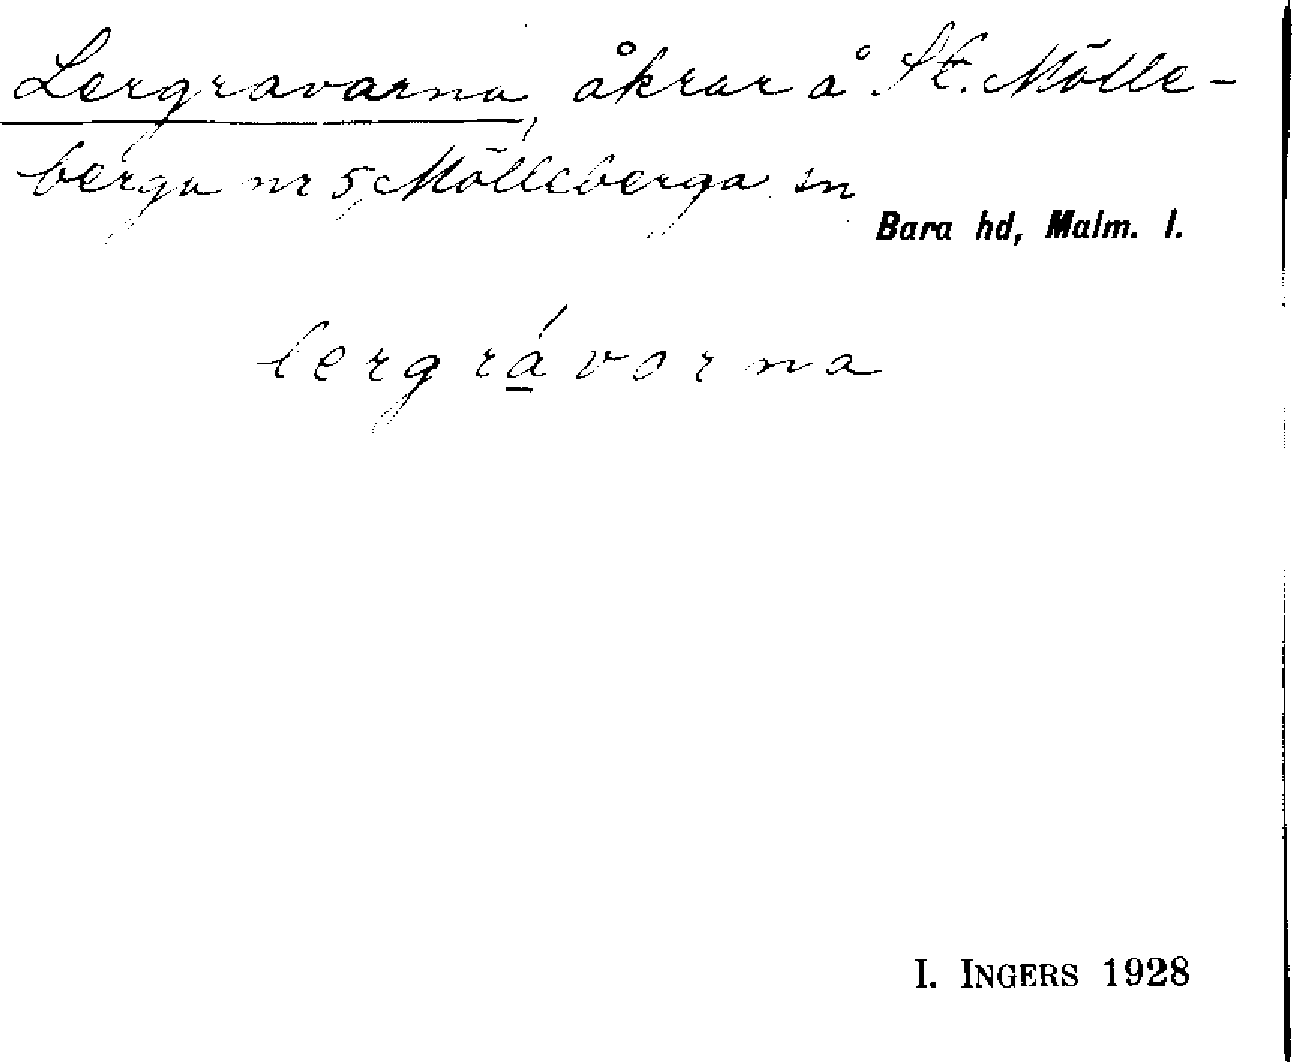 Lergravarna, åkrar å St. Mölle-
berga nr 5, Mölleberga sn
Bara hd, Malm. l.
lergrávorna
I. INGERS 1928